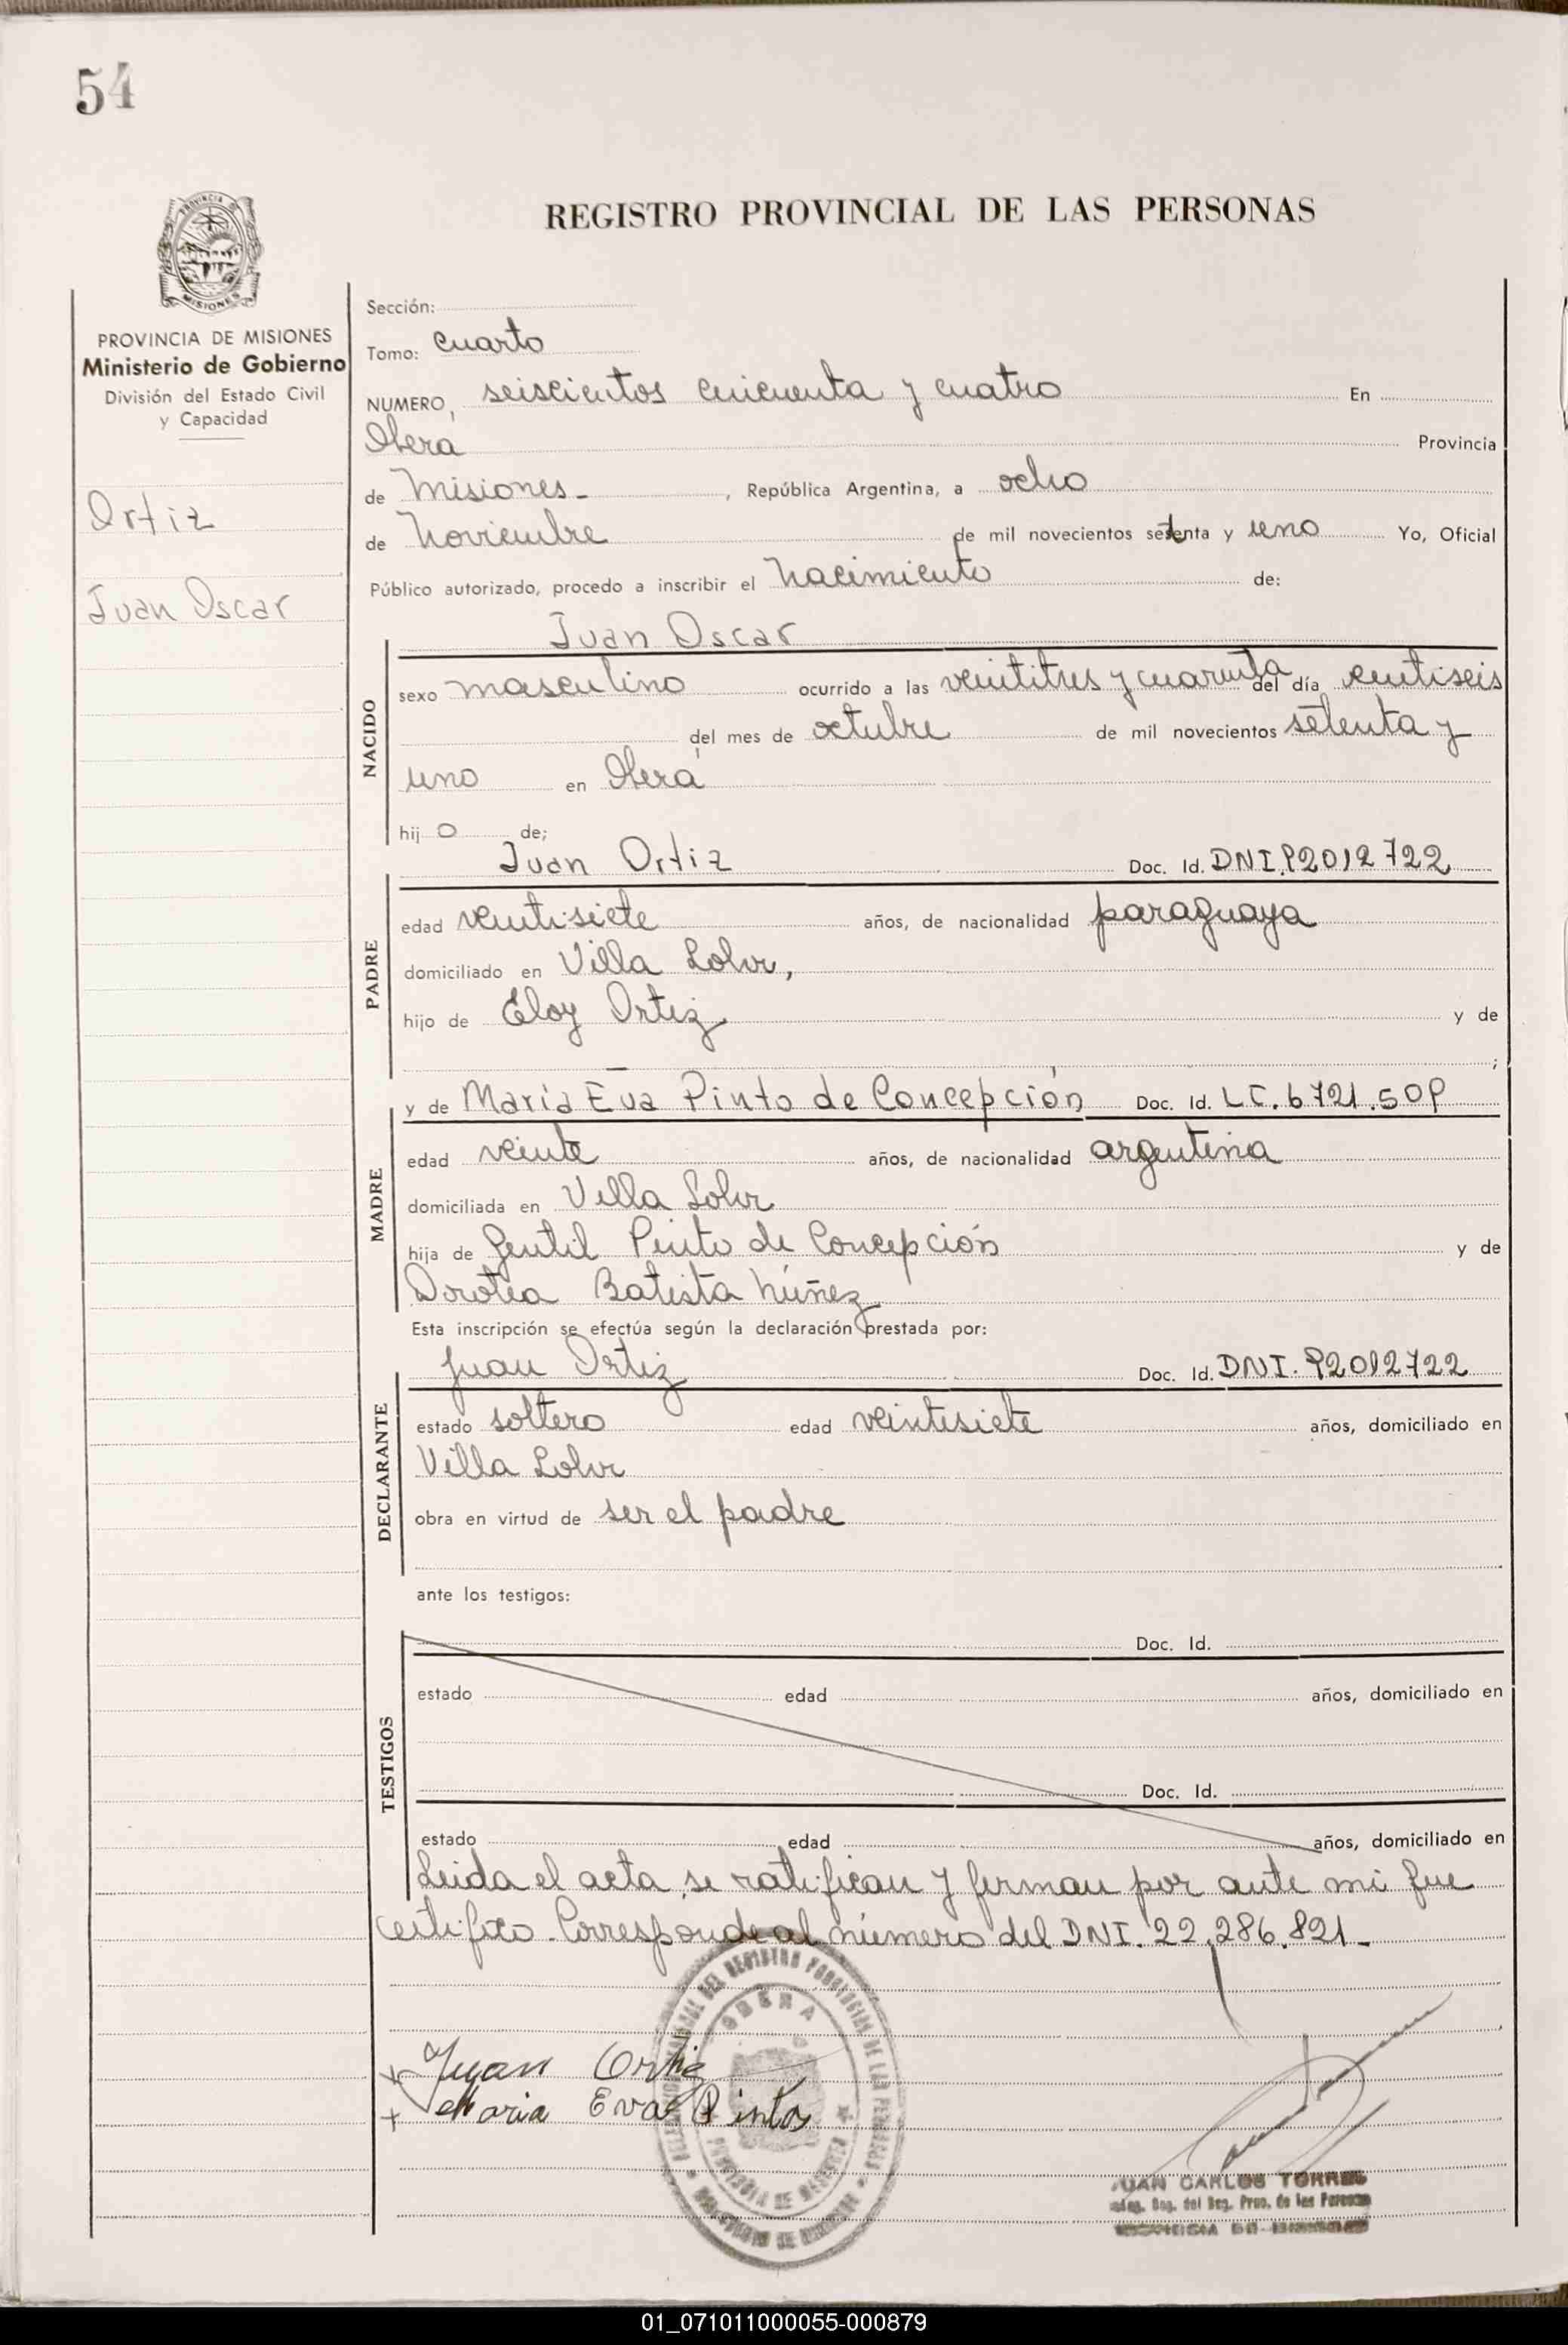 54
PROVINCIA DE MISIONES
Ministerio de Gobierno
División del Estado Civil
y Capacidad
Ortiz
Juan Oscar
REGISTRO PROVINCIAL DE LAS PERSONAS
Sección:
Tomo: cuarto
NUMERO, seiscientos cincuenta y cuatro En
Oberá Provincia
de Misiones - , República Argentina, a ocho
de Noviembre de mil novecientos setenta y uno Yo, Oficial
Público autorizado, procedo a inscribir el Nacimiento de:
Juan Oscar
NACIDO
sexo masculino ocurrido a las veintitres y cuarenta del día veintiseis
del mes de octubre de mil novecientos setenta y
uno en Oberá
hijo de;
Juan Ortiz Doc. Id. DNI.92012722
PADRE
edad veintisiete años, de nacionalidad paraguaya
domiciliado en Villa
hijo de Eloy Ortiz y de
;
y de María Eva Pinto de Concepción Doc. Id. LC. 6721.509
MADRE
edad veinte años, de nacionalidad argentina
domiciliada en Villa
hija de Gentil Pinto de Concepción y de
Dorotea Batista Núñez
Esta inscripción se efectúa según la declaración prestada por:
Juan Ortiz Doc. Id. DNI. 92012722
DECLARANTE
estado soltero edad veintisiete años, domiciliado en
Villa
obra en virtud de ser el padre
ante los testigos:
TESTIGOS
Doc. Id.
estado edad años, domiciliado en
Doc. Id.
estado edad años, domiciliado en
Leida el acta se ratifican y firman por ante mi que
certifico. Corresponde al número del DNI. 22.286.821-
OBERA
x Juan Ortiz
x Maria Eva Pinto
JUAN CARLOS TORRES
01_071011000055-000879